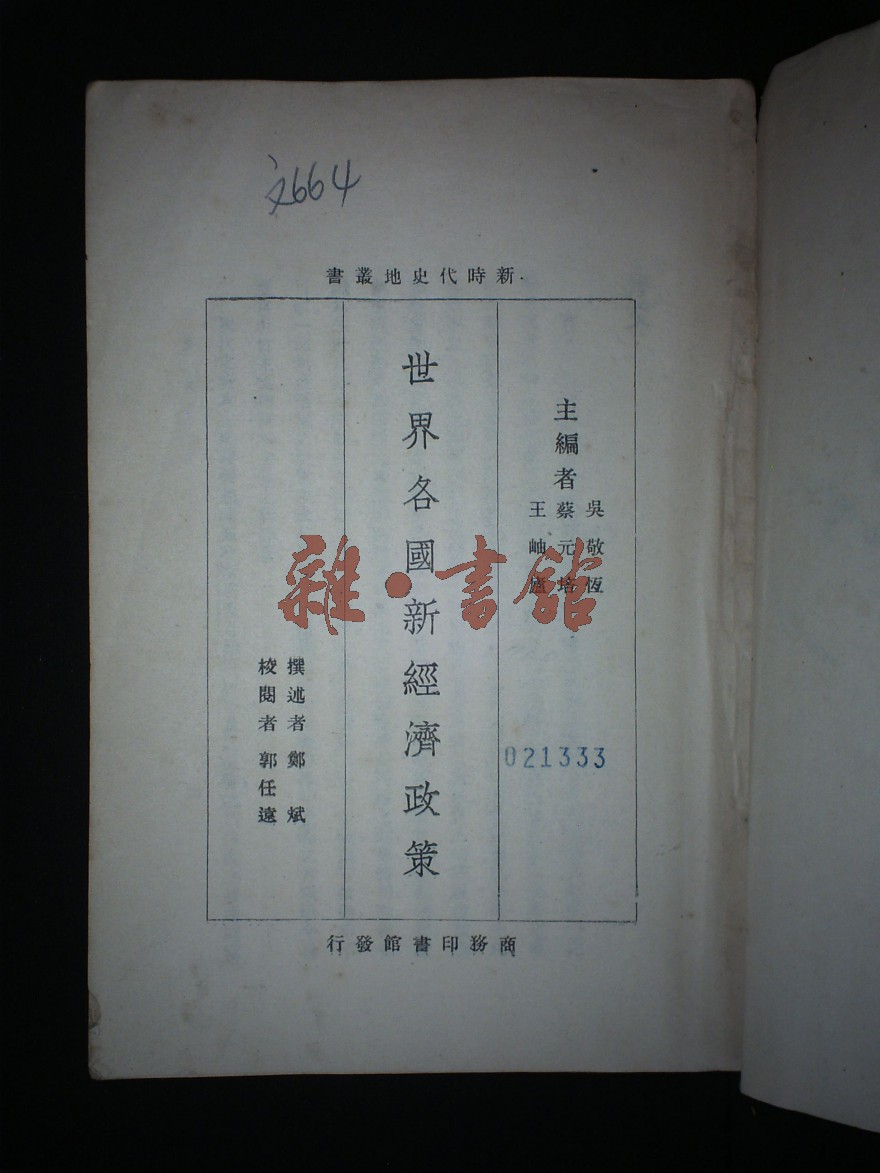 文664
新時代史地叢書
主編者
吳敬恆
蔡元培
王岫廬
世界各國新經濟政策
撰述者 鄭斌
校閱者 郭任遠
021333
商務印書館發行
雜·書館